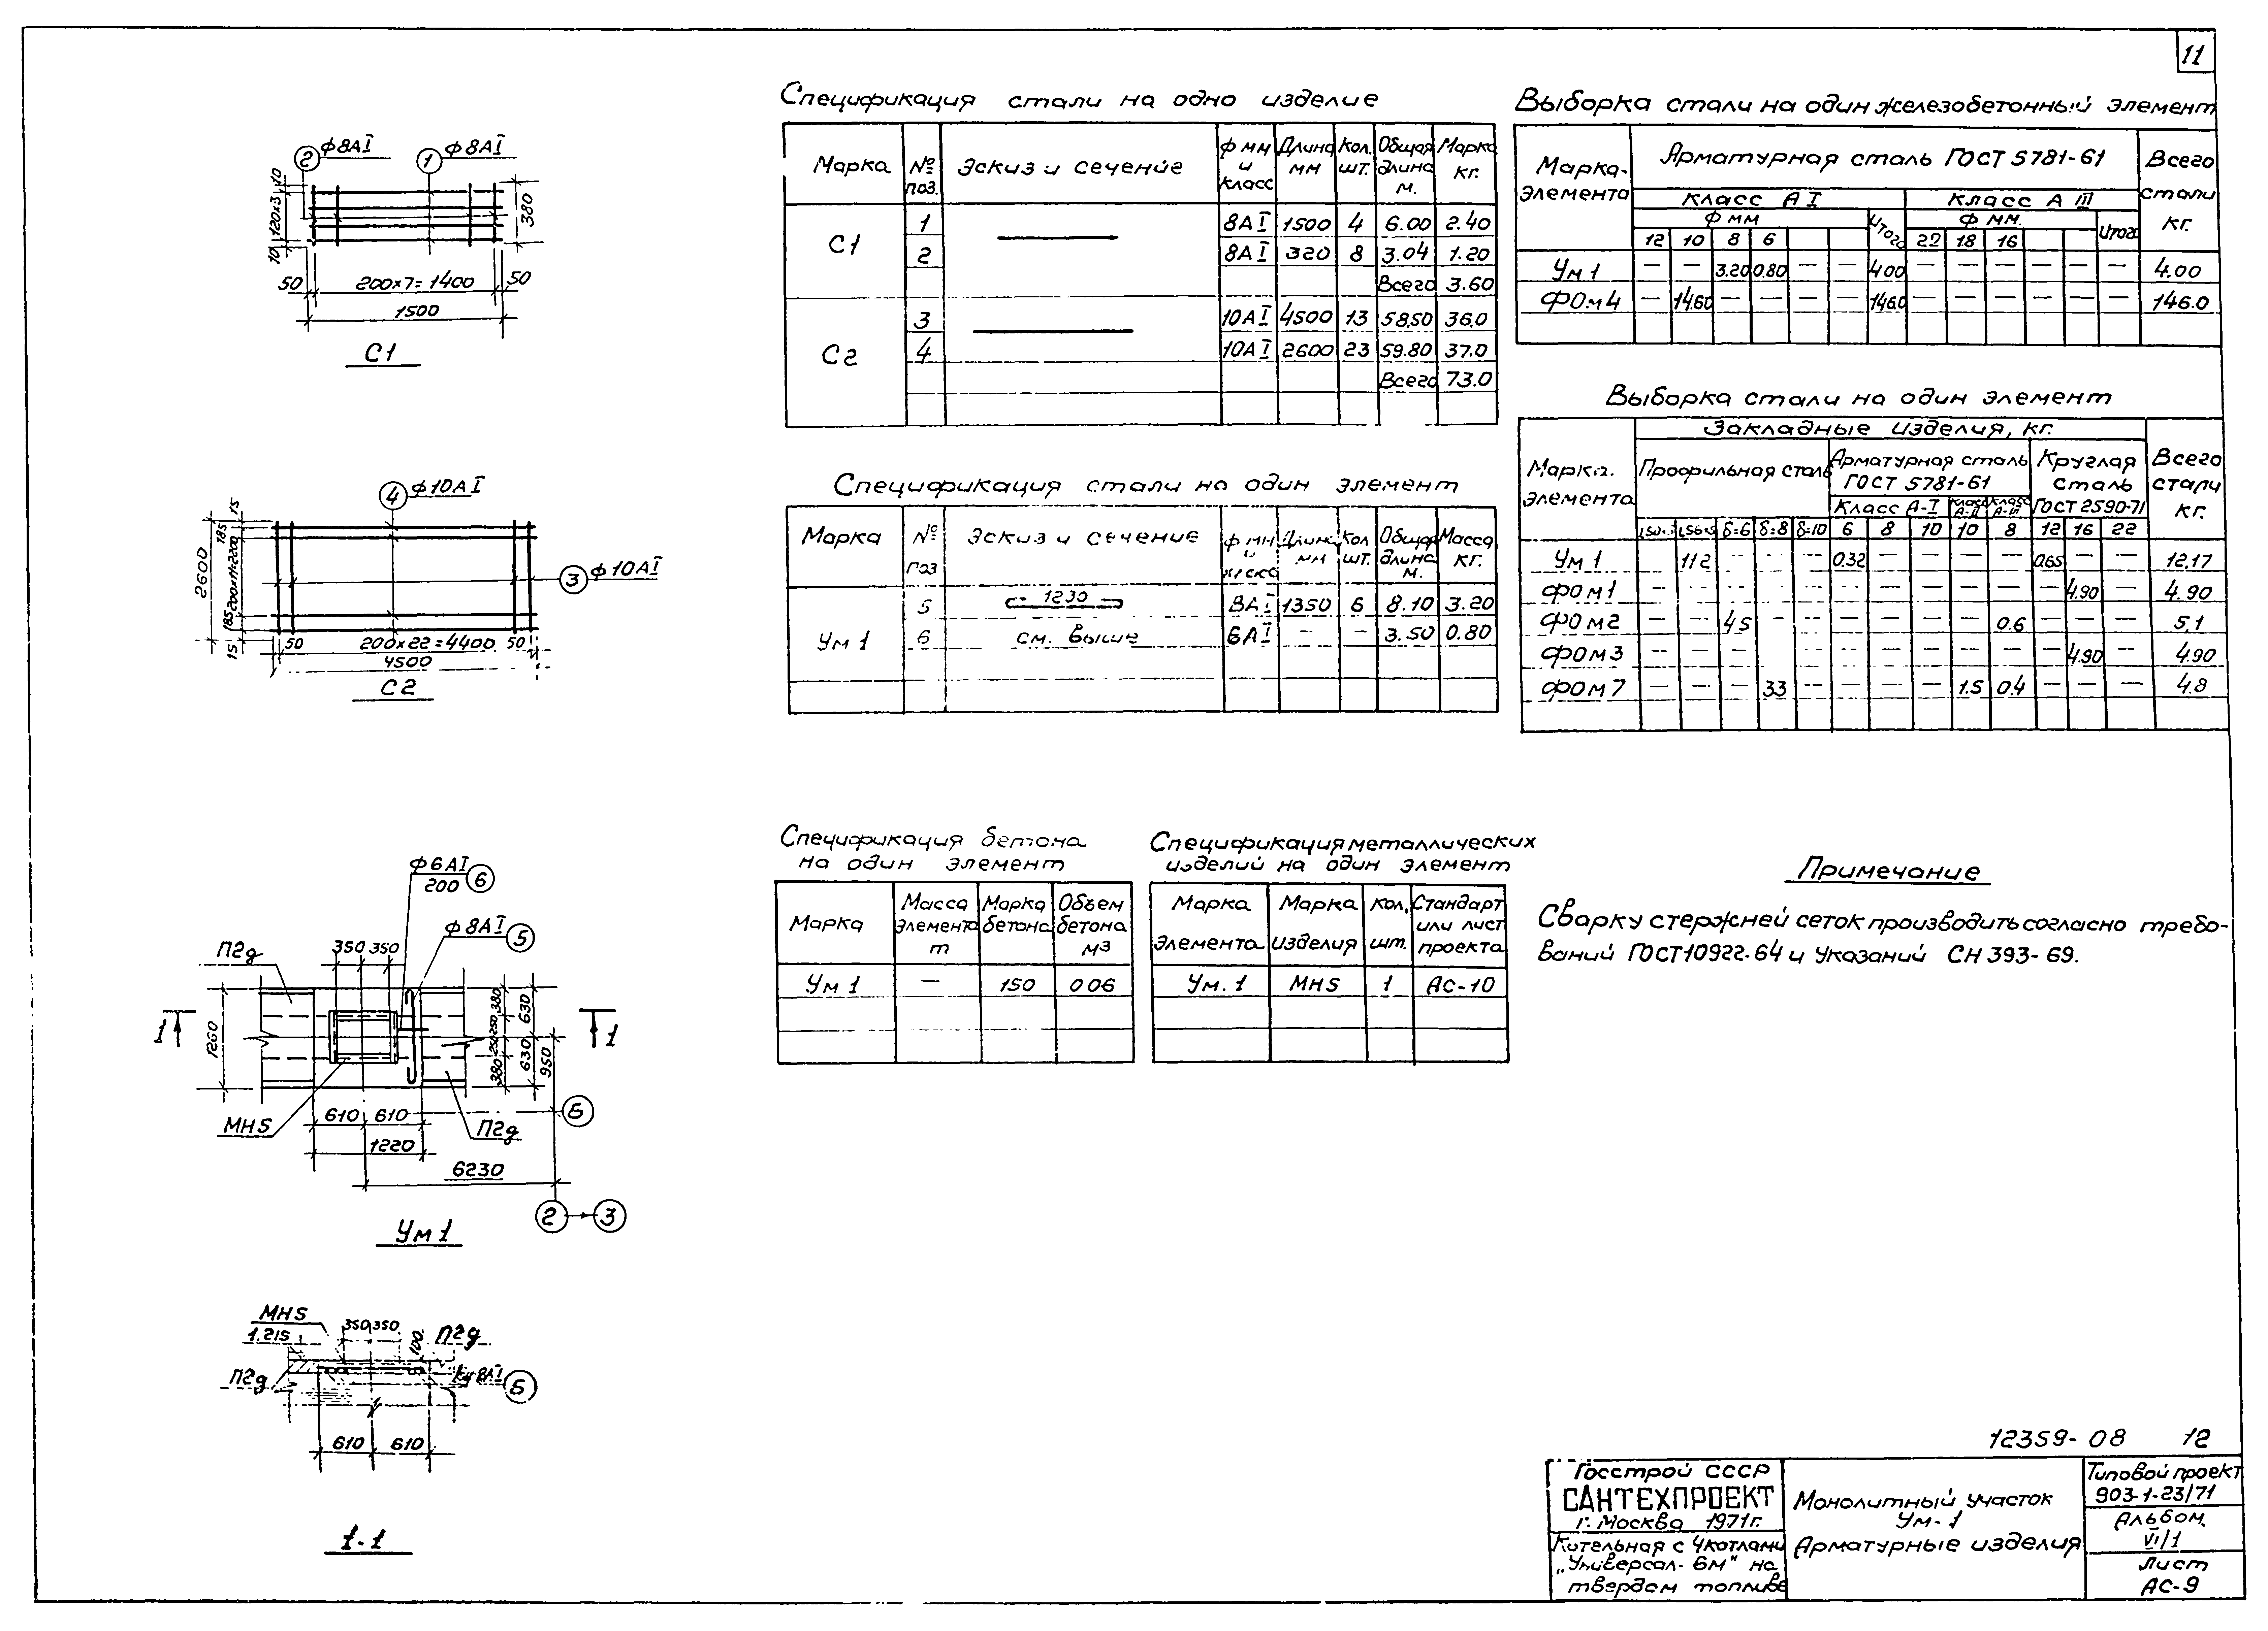 11
2 ф8АI 1 ф8АI
10
120х3
10
380
50 200х7=1400 50
1500
С1
4 ф10АI
15
185
200х11=2200
185
15
2600
3 ф10АI
50 200х22=4400 50
4500
С2
ф6АI
200 6
ф8АI 5
П2д 350 350
1 1
1260
380
250 250
380
630
630
950
МН5
610 610 Б
П2д
1220
6230
2 3
Ум1
МН5
1.215 350 350 100 П2д
П2д 8АI 5
610 610
1-1
Спецификация стали на одно изделие
Марка № поз. Эскиз и сечение ф мм и класс Длина мм Кол. шт. Общая длина м. Марка кг.
С1 1 8АI 1500 4 6.00 2.40
2 8АI 320 8 3.04 1.20
Всего 3.60
С2 3 10АI 4500 13 58.50 36.0
4 10АI 2600 23 59.80 37.0
Всего 73.0
Спецификация стали на один элемент
Марка № поз Эскиз и сечение ф мм и класс Длина мм Кол шт. Общая длина м. Масса кг.
Ум1 5 1230 8АI 1350 6 8.10 3.20
6 см. выше 6АI — — 3.50 0.80
Спецификация бетона
на один элемент
Марка Масса элемента т Марка бетона Объем бетона м3
Ум1 — 150 0 06
Спецификация металлических
изделий на один элемент
Марка элемента Марка изделия кол. шт. Стандарт или лист проекта
Ум.1 МН5 1 АС-10
Выборка стали на один железобетонный элемент
Марка-элемента Арматурная сталь ГОСТ 5781-61 Всего стали кг.
Класс АI Класс А III
ф мм Итого ф мм. Итого
12 10 8 6 22 18 16
Ум1 — — 3.20 0.80 — — 4.00 — — — — — — 4.00
ФОм4 — 14.60 — — — — 146.0 — — — — — — 146.0
Выборка стали на один элемент
Марка элемента Закладные изделия, кг. Всего стали кг.
Профильная сталь Арматурная сталь ГОСТ 5781-61 Круглая сталь ГОСТ 2590-71
Класс А-I Класс А-II Класс А-III
L56х5 δ=6 δ=8 δ=10 6 8 10 10 8 12 16 22
Ум1 — 11 2 - - - 0.32 — — — — 0.65 — — 12.17
ФОм1 — — — — — — — — — — — 4.90 — 4.90
ФОм2 — — 4 5 - - - — — — 0.6 — — — 5.1
ФОм3 — — — — — — — — — — 4.90 — 4.90
ФОм7 — — — 3 3 — — — — 1.5 0.4 — — — 4.8
Примечание
Сварку стержней сеток производить согласно требо-
ваний ГОСТ 10922-64 и Указаний СН 393-69.
12359-08 12
Госстрой СССР
САНТЕХПРОЕКТ
г. Москва 1971г.
Котельная с 4 котлами
„Универсал-6м" на
твердом топливе
Монолитный участок
Ум-1
Арматурные изделия
Типовой проект
903-1-23/71
Альбом
VI/1
Лист
АС-9